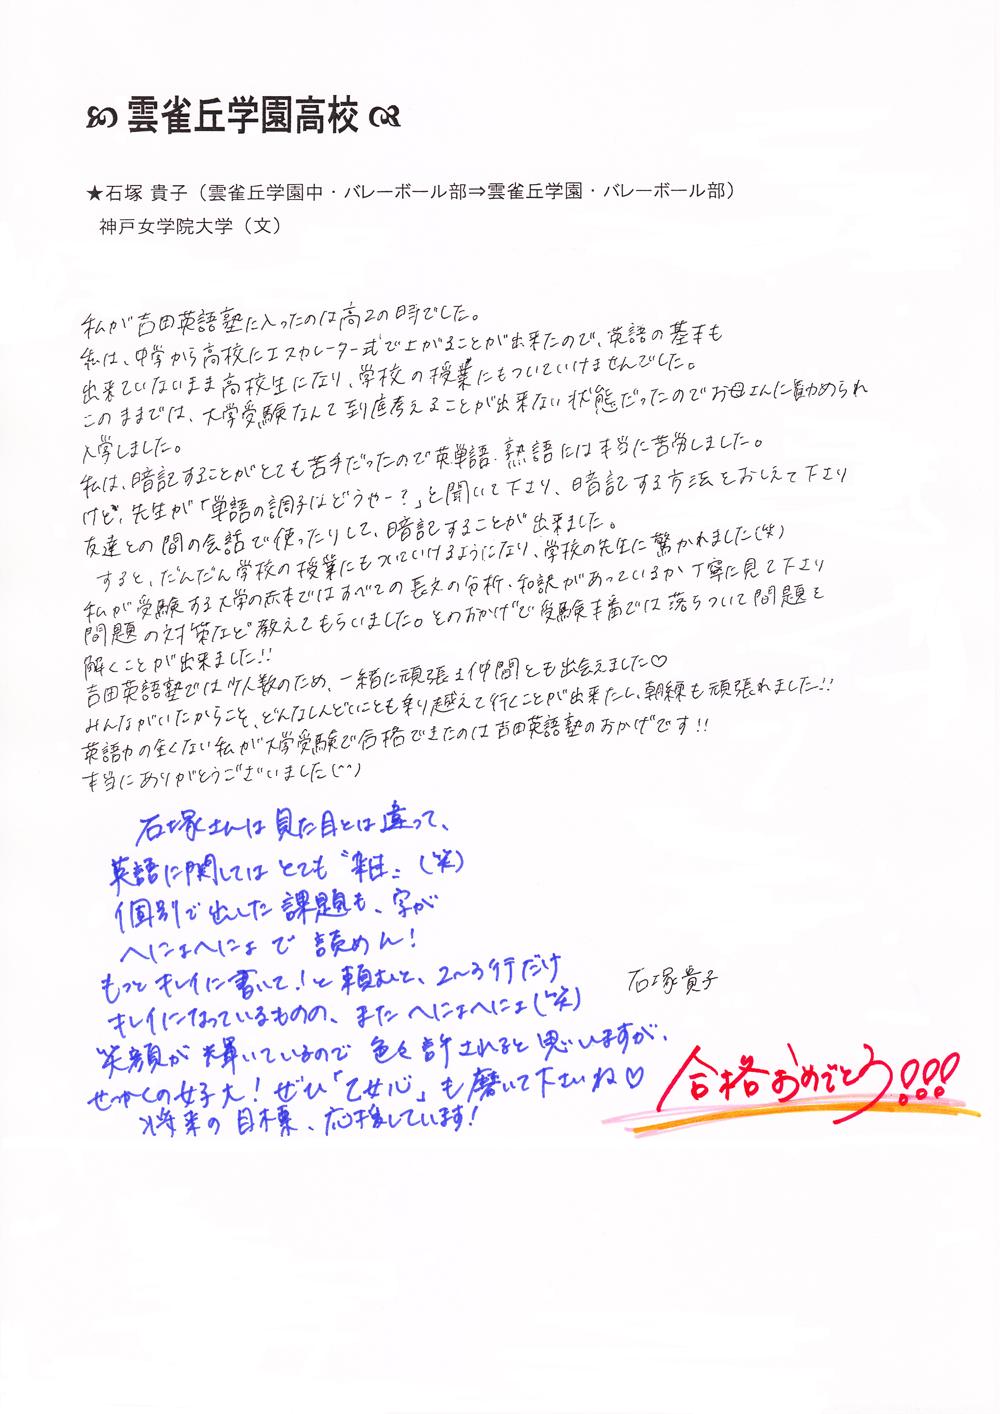 雲雀丘学園高校
★石塚 貴子（雲雀丘学園中・バレーボール部⇒雲雀丘学園・バレーボール部）
神戸女学院大学（文）
私が吉田英語塾に入ったのは高2の時でした。
私は、中学から高校にエスカレーター式で上がることが出来たので、英語の基本も
出来ていないまま高校生になり、学校の授業にもついていけませんでした。
このままでは、大学受験なんて到底考えることが出来ない状態だったのでお母さんに勧められ
入学しました。
私は、暗記することがとても苦手だったので英単語・熟語には本当に苦労しました。
けど、先生が「単語の調子はどうやー？」と聞いて下さり、暗記する方法をおしえて下さり
友達との間の会話で使ったりして、暗記することが出来ました。
すると、だんだん学校の授業にもついていけるようになり、学校の先生に驚かれました(笑)
私が受験する大学の赤本ではすべての長文の分析・和訳があっているか丁寧に見て下さり
問題の対策など教えてもらいました。そのおかげで受験本番では落ちついて問題を
解くことが出来ました!!
吉田英語塾では少人数のため、一緒に頑張る仲間とも出会えました♡
みんながいたからこそ、どんなしんどいことも乗り越えて行くことが出来たし、朝練も頑張れました!!
英語力の全くない私が大学受験で合格できたのは吉田英語塾のおかげです!!
本当にありがとうございました(^^)
石塚さんは見た目とは違って、
英語に関してはとても〝雑〟(笑)
個別で出した課題も、字が
へにょへにょで読めん!
もっとキレイに書いて!と頼むと、2〜3行だけ
キレイになっているものの、またへにょへにょ(笑)
石塚貴子
笑顔が輝いているので色々許されると思いますが、
せっかくの女子大!ぜひ「乙女心」も磨いて下さいね♡
将来の目標、応援しています!
合格おめでとう!!!